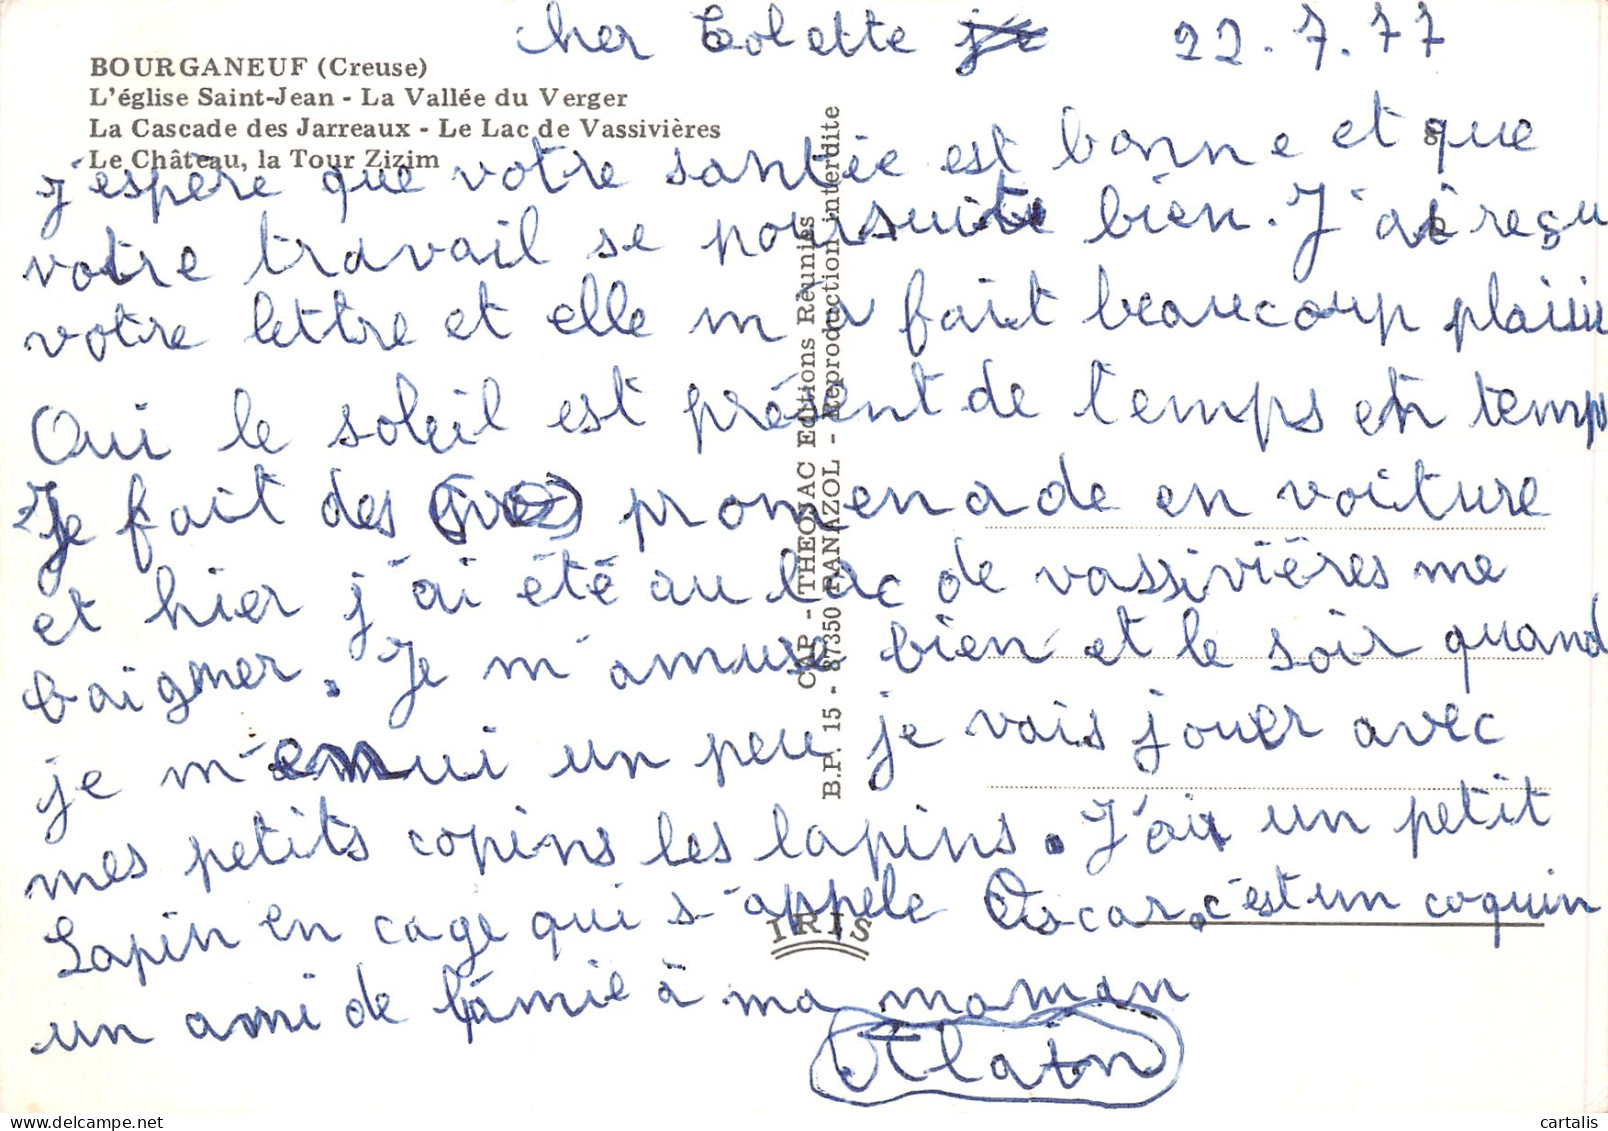 cher Colette je 22.7.77
BOURGANEUF (Creuse)
L'église Saint-Jean - La Vallée du Verger
La Cascade des Jarreaux - Le Lac de Vassivières
Le Château, la Tour Zizim
j'espère que votre santée est bonne et que
votre travail se poursuite bien. J'ai reçu
votre lettre et elle m'a fait beaucoup plaisir
Oui le soleil est présent de temps en temps
Je fait des promenade en voiture
et hier j'ai été au lac de vassivières me
baigner. Je m'amuse bien et le soir quand
je m'ennui un peu je vais jouer avec
mes petits copins les lapins. J'ai un petit
Lapin en cage qui s'appele Oscar, c'est un coquin
un ami de l'amie à ma maman
Alain
CAP - THEOJAC Editions Réunies
B.P. 15 - 87350 PANAZOL - Reproduction interdite
IRIS
cartalis